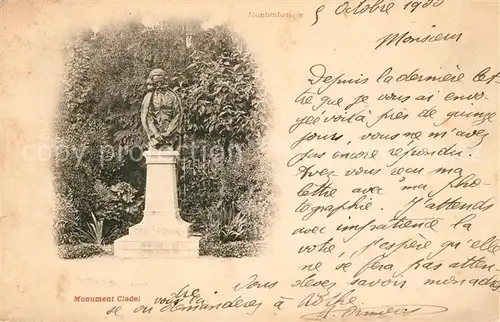 Montauban
5 Octobre 1900
Monsieur
Depuis la dernière let
tre que je vous ai envo
yée voilà près de quinze
jours, vous ne m'avez
pas encore répondu.
Avez vous reçu ma
lettre avec ma pho
tographie. J'attends
avec impatience la
votre, J'espère qu'elle
ne se fera pas atten
dre. Vous devez savoir mon adres
se ou vous la demanderez à
Monument Cladel